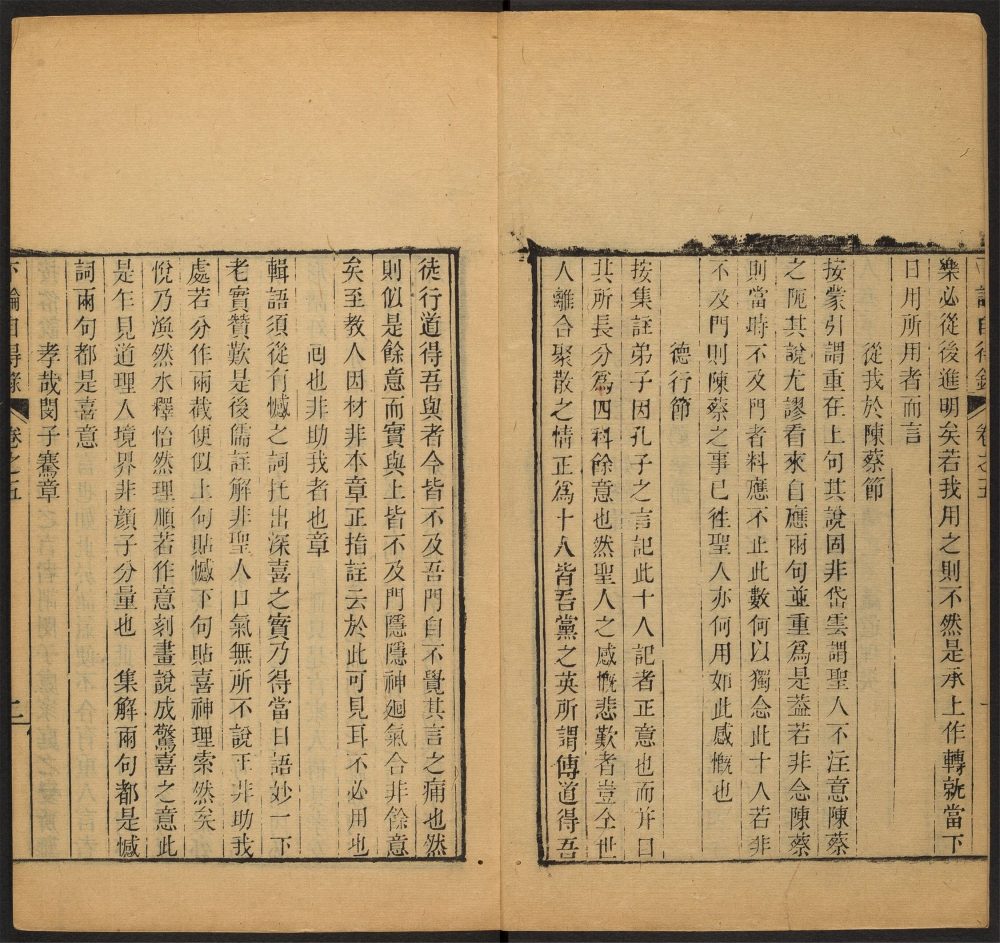 下論自得錄 卷之五 一
樂必從後進明矣若我用之則不然是承上作轉就當下
日用所用者而言
從我於陳蔡節
按蒙引謂重在上句其說固非岱雲謂聖人不注意陳蔡
之阨其說尤謬看來自應兩句並重爲是葢若非念陳蔡
則當時不及門者料應不止此數何以獨念此十人若非
不及門則陳蔡之事已徃聖人亦何用如此感慨也
德行節
按集註弟子因孔子之言記此十人記者正意也而并曰
其所長分爲四科餘意也然聖人之感慨悲歎者豈仝世
人離合聚散之情正爲十人皆吾黨之英所謂傳道得吾
徒行道得吾與者今皆不及吾門自不覺其言之痛也然
則似是餘意而實與上皆不及門隱隱神廻氣合非餘意
矣至教人因材非本章正指註云於此可見耳不必用也
囘也非助我者也章
輯語須從有憾之詞托出深喜之實乃得當日語妙一下
老實贊歎是後儒註解非聖人口氣無所不說正非助我
處若分作兩截便似上句貼憾下句貼喜神理索然矣
悅乃渙然氷釋怡然理順若作意刻畫說成驚喜之意此
是乍見道理人境界非顏子分量也 集解兩句都是憾
詞兩句都是喜意
孝哉閔子騫章
下論自得錄 卷之五 二